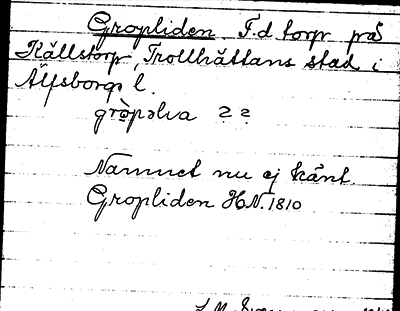 Gropliden. F.d. torp på
Källstorp, Trollhättans stad i
Älfsborgs l.
gròpəlıa 2 2
Namnet nu ej känt.
Gropliden H.N. 1810